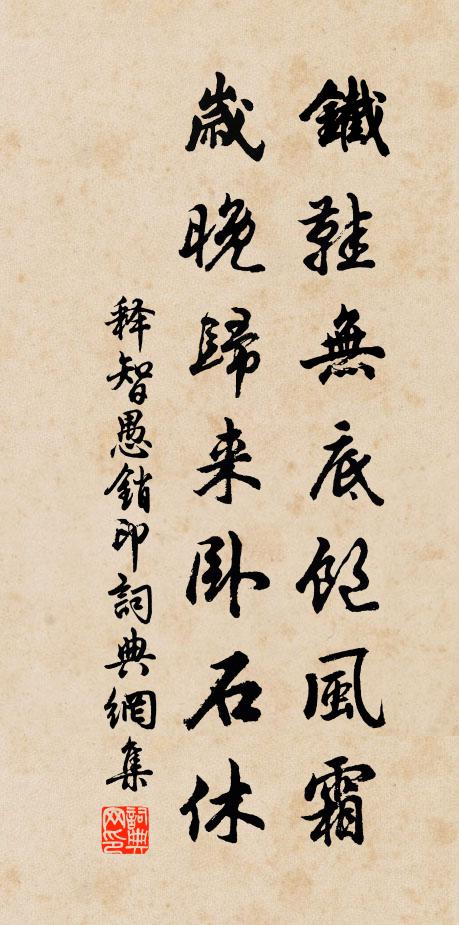 鐵鞋無底飽風霜
歲晚歸来卧石休
释智愚銷印詞典網集
詞典
网印